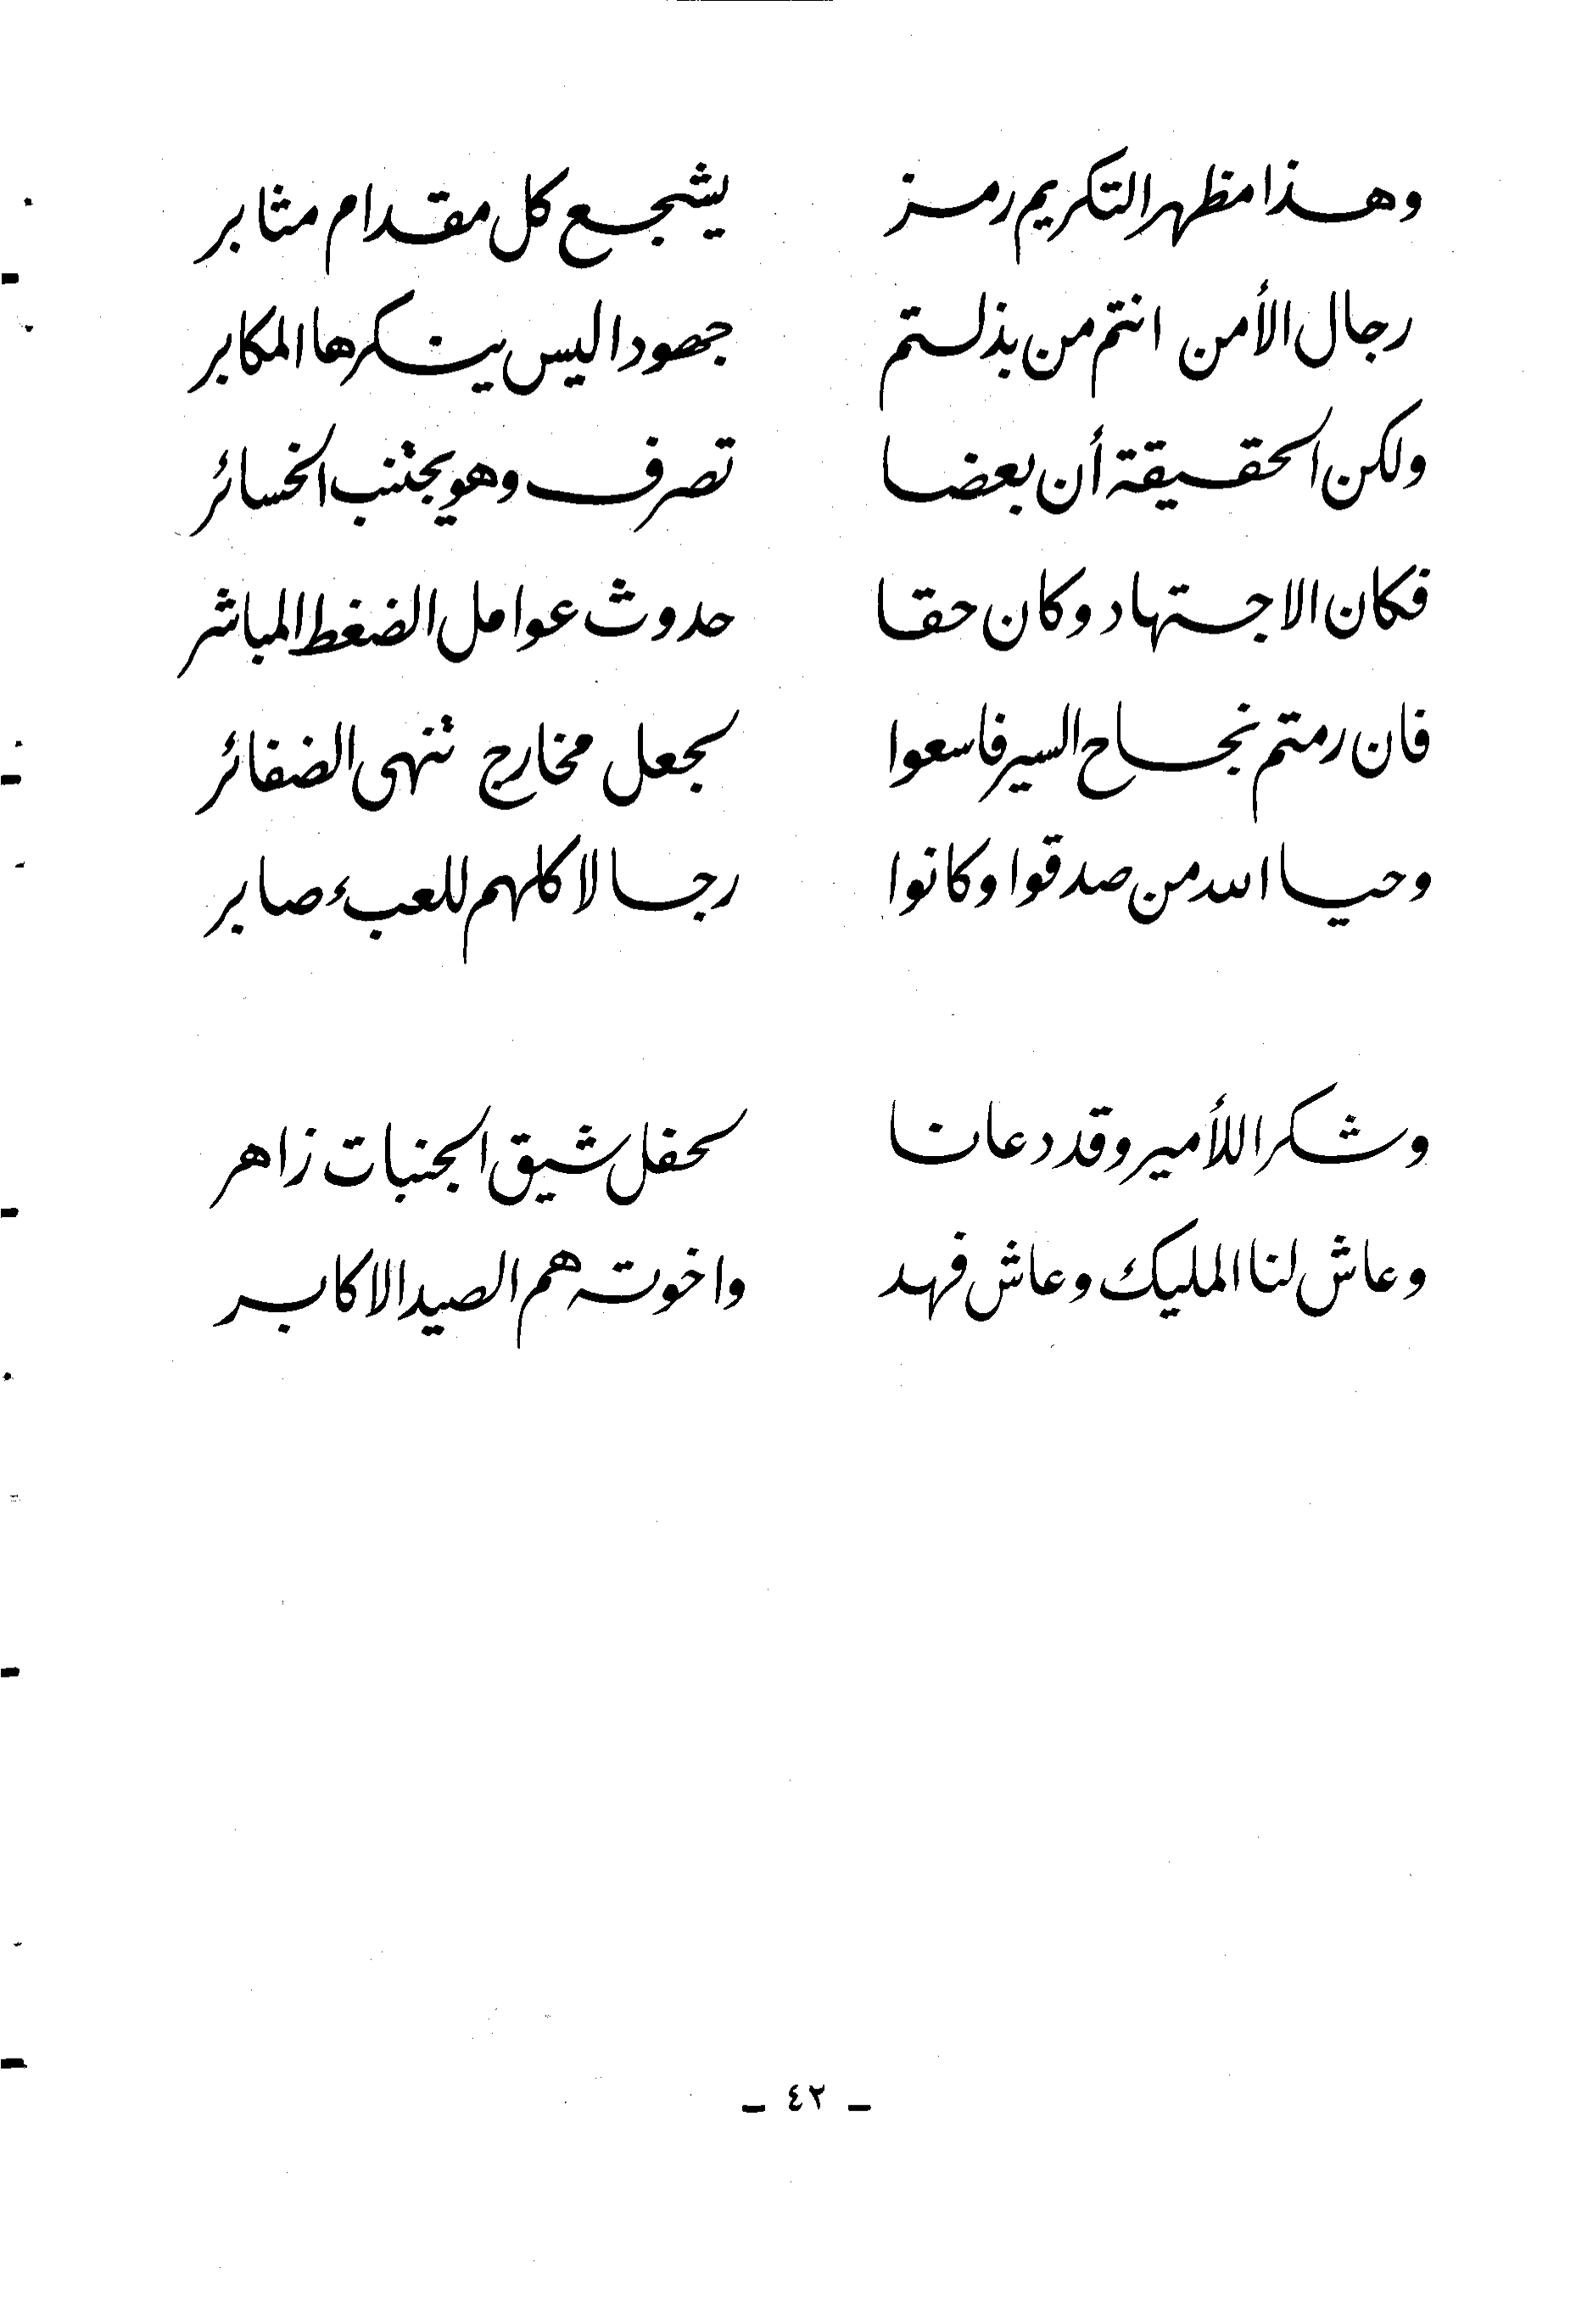 وهذا مظهر التكريم رمز يشجع كل مقدام مثابر
رجال الأمن انتم من بذلتم جهودا ليس ينكرها المكابر
ولكن الحقيقة أن بعضا تصرف وهو يجتنب الخسائر
فكان الاجتهاد وكان حقا حدوث عوامل الضغط المباشر
فان رمتم نجاح السير فاسعوا لجعل مخارج تنهى الضفائر
وحيا الله من صدقوا وكانوا رجالا كلهم للعبء صابر
وشكرا للأمير وقد دعانا لحفل شيق الجنبات زاهر
وعاش لنا المليك وعاش فهد واخوته هم الصيد الاكابر
ـ ٤٢ ـ